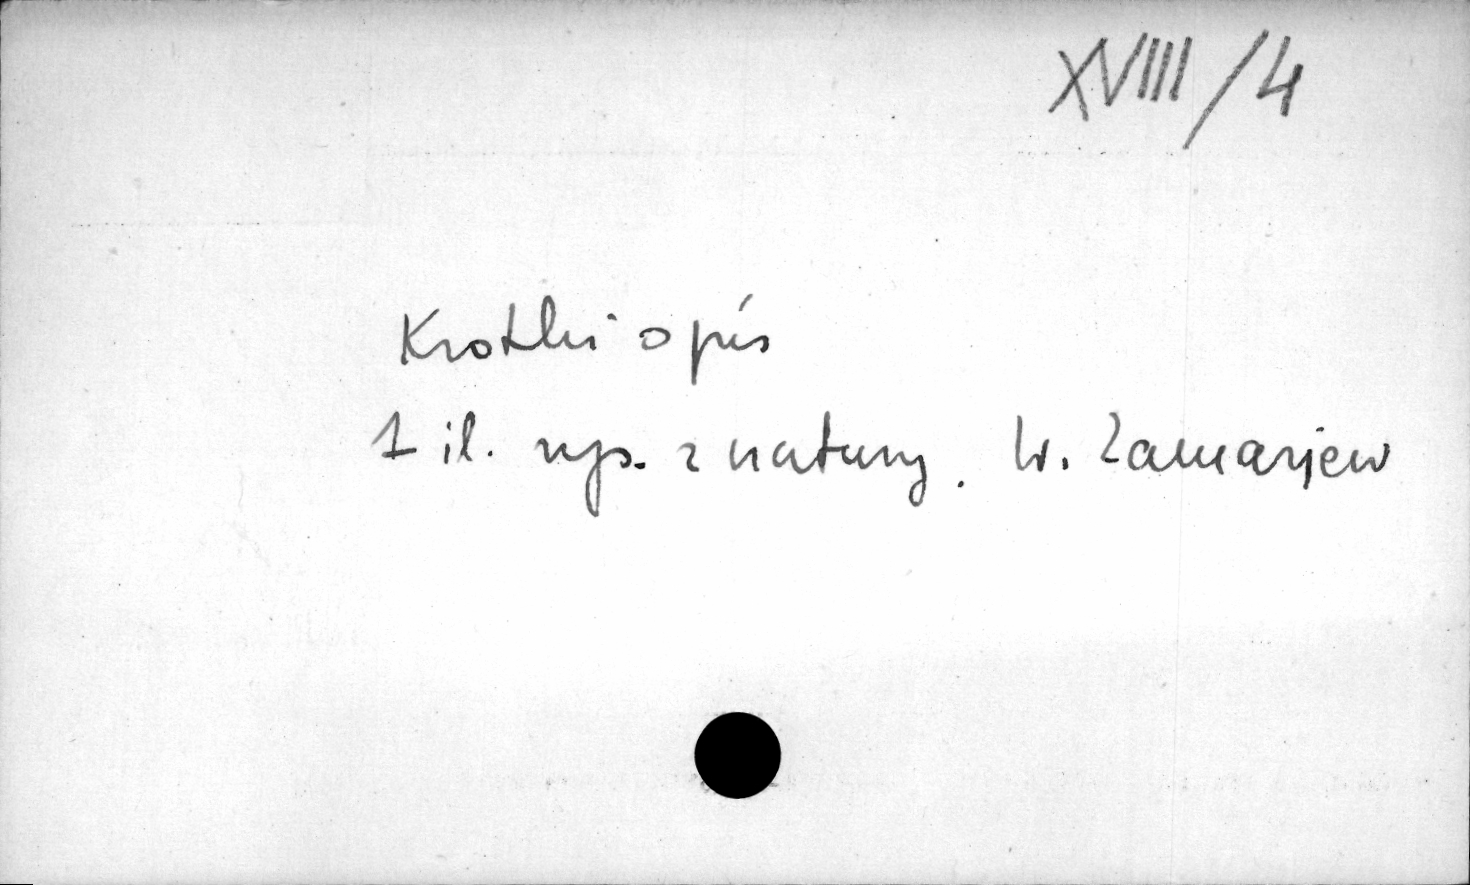 XVIIII/4
Krotki opis
1 il. rys. z natury. W. Zamarajew